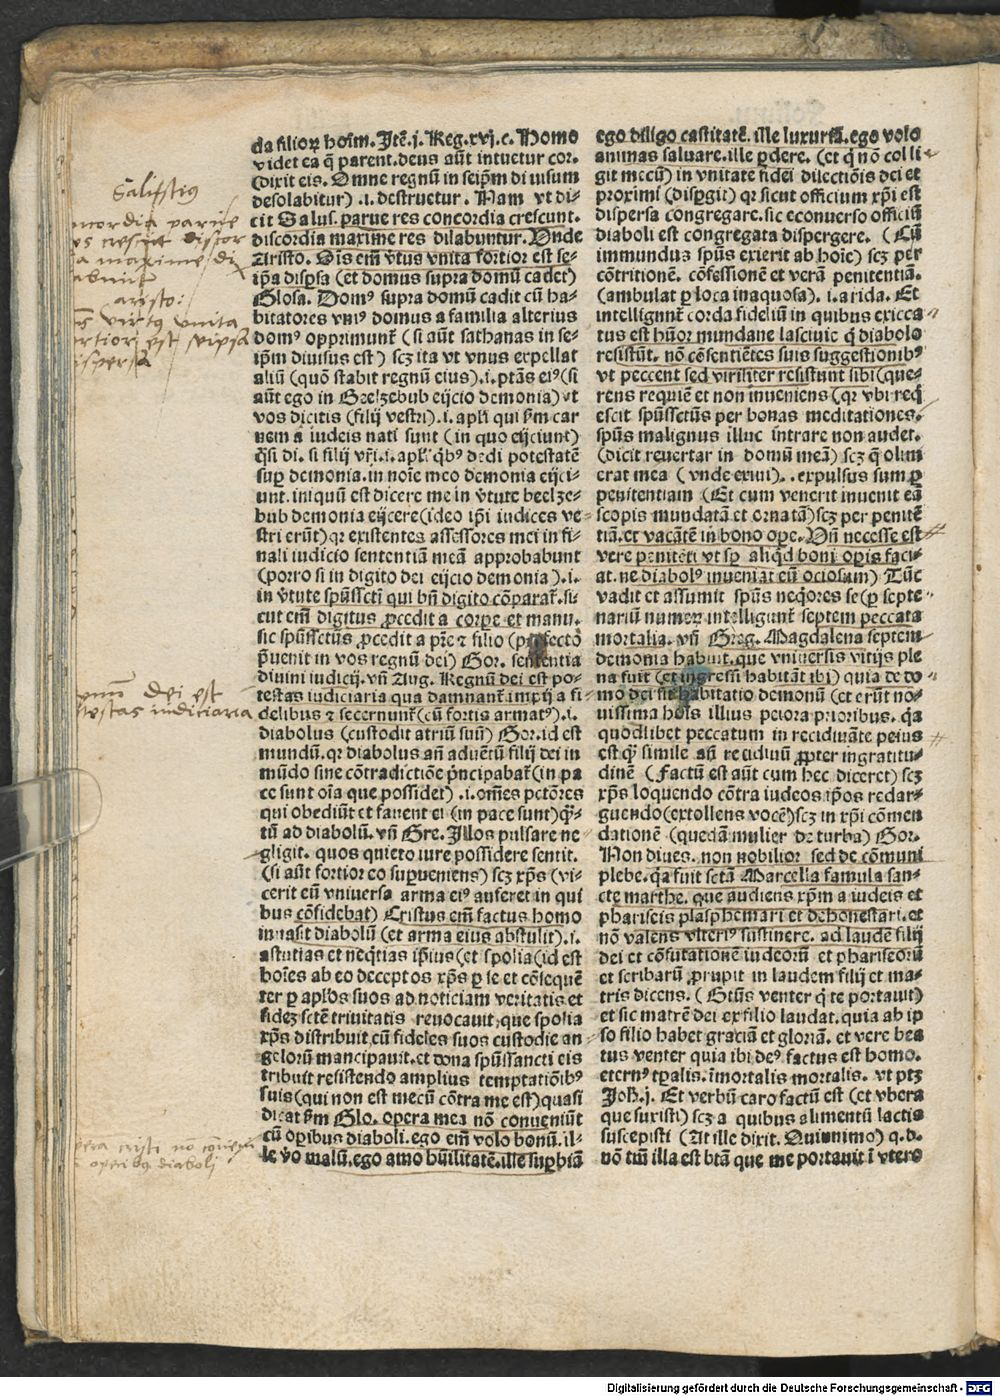 da filioꝝ hoīm. Itē. j. Reg. xvj. c. Homo
videt ea q̄ parent. deus aūt intuetur cor.
(dixit eis. Omne regnū in seip̄m diuisum
desolabitur) .i. destructur. Nam vt di-
cit Salus. parue res concordia crescunt.
discordia maxime res dilabuntur. Vnde
Aristo. Ois em̄ v̄tus vnita fortior est se-
ip̄a disp̄sa (et domus supra domū cadet)
Glosa. Domꝰ supra domū cadit cū ha-
bitatores vniꝰ domus a familia alterius
domꝰ opprimunt̄ (si aūt sathanas in se-
ip̄m diuisus est) scꝫ ita vt vnus expellat
aliū (quō stabit regnū eius) .i. ptās eiꝰ (si
aūt ego in Beelzebub eijcio demonia) vt
vos dicitis (filij vestri) .i. apl̄i qui ẜm car
nem a iudeis nati sunt (in quo eijciunt)
q̄si di. si filij vr̄i .i. apl̄i q̄bꝰ dedi potestatē
suꝑ demonia. in noīe meo demonia eijci-
unt. iniquū est dicere me in v̄tute beelze-
bub demonia eijcere (ideo ip̄i iudices ve-
stri erūt) qꝛ existentes assessores mei in fi-
nali iudicio sententiā meā approbabunt
(porro si in digito dei eijcio demonia) .i.
in v̄tute spūssctī qui bn̄ digito cōparat̄. si-
cut em̄ digitus ꝓcedit a corpe et manu.
sic spūssctūs ꝓcedit a pr̄e ⁊ filio (profecto
p̄uenit in vos regnū dei) Gor. sententia
diuini iudicij. vn̄ Aug. Regnū dei est po-
testas iudiciaria qua damnant̄ impij a fi-
delibus ⁊ secernunt̄ (cū fortis armatꝰ) .i.
diabolus (custodit atriū suū) Gor. id est
mundū. qꝛ diabolus an̄ aduētū filij dei in
mūdo sine cōtradictiōe p̄ncipabat̄ (in pa
ce sunt oīa que possidet) .i. om̄es pctōres
qui obediūt et fauent ei (in pace sunt) q̄ꝫ-
tū ad diabolū. vn̄ Gre. Illos pulsare ne-
gligit. quos quieto iure possidere sentit.
(si aūt fortior eo suꝑueniens) scꝫ xp̄s (vi-
cerit eū vniuersa arma eiꝰ auferet in qui
bus cōfidebat) Cristus em̄ factus homo
inuasit diabolū (et arma eius abstulit) .i.
astutias et neq̄tias ip̄ius (et spolia (id est
hoīes ab eo deceptos xp̄s ꝑ se et cōsequē
ter ꝑ apl̄os suos ad noticiam veritatis et
fidez sctē trinitatis reuocauit, que spolia
xp̄s distribuit, cū fideles suos custodie an-
gelorū mancipauit. et dona spūssancti eis
tribuit resistendo amplius temptatiōibꝰ
suis (qui non est mecū cōtra me est) quasi
dicat ẜm Glo. opera mea nō conueniūt
cū oꝑibus diaboli. ego em̄ volo bonū. il-
le v̄o malū. ego amo hūilitatē. ille suꝑbiā
ego diligo castitatē. ille luxuriā. ego volo
animas saluare. ille ꝑdere. (et q̄ nō colli-
git mecū) in vnitate fidei dilectiōis dei et
proximi (disꝑgit) qꝛ sicut officium xp̄i est
dispersa congregare. sic econuerso officiū
diaboli est congregata dispergere. (Cū
immundus spūs exierit ab hoīe) scꝫ per
cōtritionē. cōfessionē et verā penitentiā.
(ambulat ꝑ loca inaquosa) .i. arida. Et
intelligunt̄ corda fideliū in quibus exicca-
tus est hūor mundane lasciuie q̄ diabolo
resistūt. nō cōsentiētes suis suggestionibꝰ
vt peccent sed viriliter resistunt sibi (que-
rens requiē et non inueniens (qꝛ vbi req̄
escit spūssctūs per bonas meditationes.
spūs malignus illuc intrare non audet.
(dicit reuertar in domū meā) scꝫ q̄ olim
erat mea (vnde exiui). . expulsus sum ꝑ
penitentiam (Et cum venerit inuenit eā
scopis mundatā et ornatā) scꝫ per penitē
tiā. et vacātē in bono oꝑe. Vn̄ necesse est
vere penitēti vt sꝑ aliq̄d boni oꝑis faci-
at. ne diabolꝰ inueniat eū ociosum) Tūc
vadit et assumit spūs neq̄ores se (ꝑ septe-
nariū numeꝝ intelligunt̄ septem peccata
mortalia. vn̄ Greg. Magdalena septem
demonia habuit. que vniuersis vitijs ple
na fuit (et ingressi habitāt ibi) quia de do-
mo dei fit habitatio demonū (et erūt no-
uissima hoīs illius peiora prioribus. q̄a
quodlibet peccatum in recidiuāte peius
est q̄ꝫ simile an̄ recidiuū ꝓpter ingratitu-
dinē (Factū est aūt cum hec diceret) scꝫ
xp̄s loquendo cōtra iudeos ip̄os redar-
guendo (extollens vocē) scꝫ in xp̄i cōmen
dationē (quedā mulier de turba) Gor.
Non diues. non nobilior sed de cōmuni
plebe. q̄a fuit sctā Marcella famula san-
cte marthe. que audiens xp̄m a iudeis et
phariseis plasphemari et dehonestari. et
nō valens vlteriꝰ sustinere. ad laudē filij
dei et cōfutationē iudeorū et phariseorū
et scribarū ꝓrupit in laudem filij et ma-
tris dicens. (Btūs venter q̄ te portauit)
et sic matrē dei ex filio laudat. quia ab ip
so filio habet graciā et gloriā. et vere bea
tus venter quia ibi deꝰ factus est homo.
eternꝰ tꝑalis. īmortalis mortalis. vt ptꝫ
Joh. j. Et verbū caro factū est (et vbera
que suxisti) scꝫ a quibus alimentū lactis
suscepisti (At ille dixit. Quinimo) q. d.
nō tm̄ illa est btā que me portauit ī vtero
Salustiꝰ
ncordia parue
es crescut discor
a maxime di
abuntur
aristo:
s virtꝰ vnita
rtior est seipsa
ispersa
gnum dei est
testas iudiciaria
pera cristi nō cōueni
operibꝰ diaboli
Digitalisierung gefördert durch die Deutsche Forschungsgemeinschaft - DFG